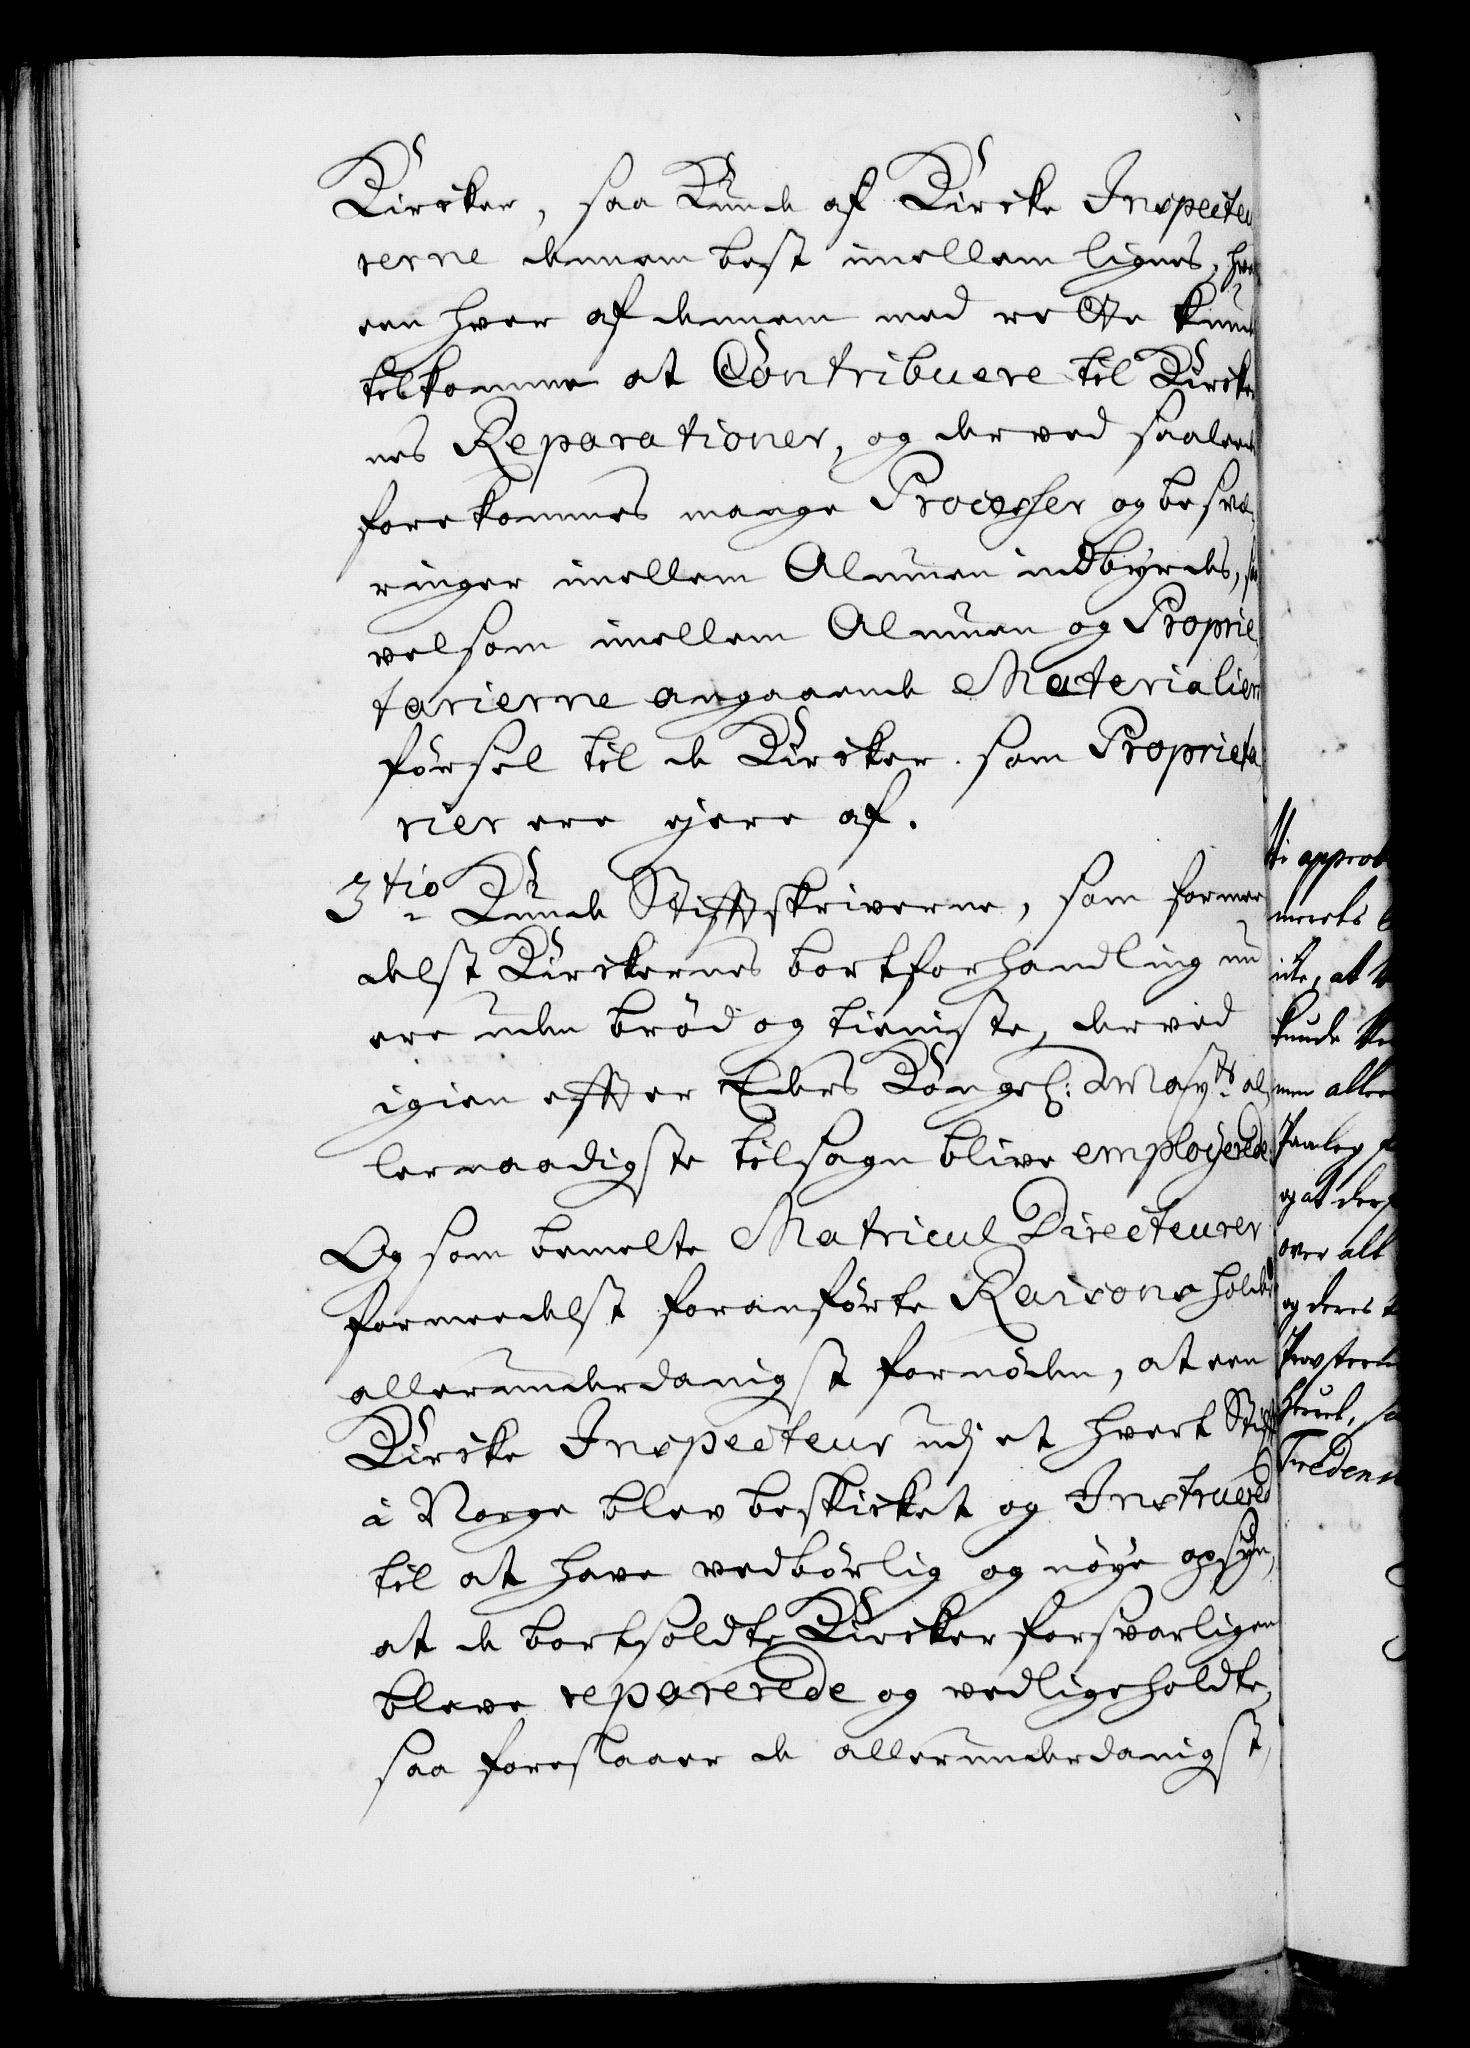 Kircker, saa kunde af Kircke Inspecteu
rerne dennem best imellem lignes, hva
een hver af dennem med rette kunde
tilkomme at Contribuere til Kircker
nes Reparationer, og derved saaleedes
forekommes mange Processer og besvæ,
ringer imellem Almuen indbyrdes, saa
velsom imellem Almuen og Proprie,
tarierne angaaende Materialiers
førsel til de Kircker som Proprieta
rier ere ejere af.
3tio Kunde Stifftskriverne, som formee
delst Kirckernes bortforhandling nu
ere uden brød og tieniste, derved
igien effter Eders Kongel: Mayts al,
lernaadigste tilsagn blive employerede.
Og som bemelte Matricul Directeurer
formeedelst foranførte Raisons holder
allerunderdanigst fornøden, at een
Kircke Inspecteur udj et hvert Stifft
i Norge blev beskicket og Instruered
til at have vedbørlig og nøye opsyn,
at de bortsoldte Kircker forsvarligen
bleve reparerede og vedligeholdte,
saa foreslaaer de allerunderdanigst,
ti approb
meets
ute, at
kunde
men aller
Paaleg
og at der
over alt
og deres
Provsterne
Freden